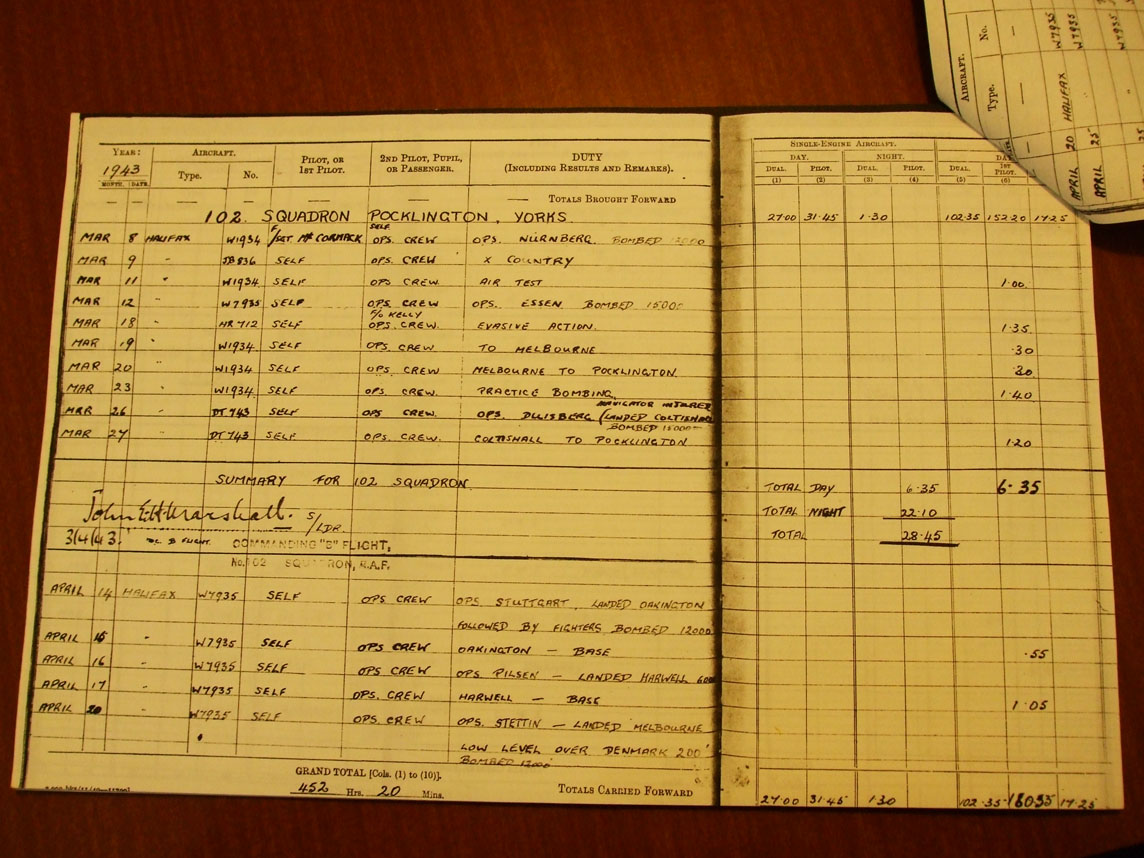 YEAR: AIRCRAFT. PILOT, OR 1ST PILOT. 2ND PILOT, PUPIL, OR PASSENGER. DUTY (INCLUDING RESULTS AND REMARKS). SINGLE-ENGINE AIRCRAFT.
1943 DAY. NIGHT. DAY
MONTH. DATE. Type. No. DUAL. PILOT. DUAL. PILOT. DUAL. 1ST PILOT.
(1) (2) (3) (4) (5) (6)
— — — — — — TOTALS BROUGHT FORWARD
102 SQUADRON POCKLINGTON, YORKS. 27.00 31.45 1.30 102.35 152.20 17.25
MAR 8 HALIFAX W1934 F/SGT. McCORMACK SELF OPS. CREW OPS. NÜRNBERG. BOMBED 12000
MAR 9 " JB836 SELF OPS. CREW X COUNTRY
MAR 11 " W1934 SELF OPS CREW. AIR TEST 1.00
MAR 12 " W7935 SELF OPS. CREW OPS. ESSEN. BOMBED 15000
MAR 18 " HR712 SELF F/O KELLY OPS. CREW. EVASIVE ACTION. 1.35
MAR 19 " W1934 SELF OPS. CREW TO MELBOURNE .30
MAR 20 " W1934 SELF OPS. CREW MELBOURNE TO POCKLINGTON
MAR 23 " W1934 SELF OPS. CREW PRACTICE BOMBING. 1.40
MAR 26 " DT743 SELF OPS CREW. OPS. DUISBERG (LANDED COLTISHALL NAVIGATOR BOMBED 15000
MAR 27 " DT743 SELF OPS. CREW. COLTISHALL TO POCKLINGTON 1.20
SUMMARY FOR 102 SQUADRON TOTAL DAY 6.35 6.35
John E H Marshall. S/LDR. TOTAL NIGHT 22.10
3/4/43. OC. B FLIGHT. COMMANDING "B" FLIGHT, TOTAL 28.45
No. 102 SQUADRON, R.A.F.
APRIL 14 HALIFAX W7935 SELF OPS CREW OPS. STUTTGART, LANDED OAKINGTON
FOLLOWED BY FIGHTERS BOMBED 12000
APRIL 15 " W7935 SELF OPS CREW OAKINGTON — BASE .55
APRIL 16 " W7935 SELF OPS CREW OPS PILSEN — LANDED HARWELL
APRIL 17 " W7935 SELF OPS. CREW HARWELL — BASE 1.05
APRIL 20 W7935 SELF OPS. CREW OPS. STETTIN — LANDED MELBOURNE
LOW LEVEL OVER DENMARK 200'
BOMBED 12000'
GRAND TOTAL [Cols. (1) to (10)].
452 Hrs. 20 Mins. TOTALS CARRIED FORWARD 27.00 31.45 1.30 102.35 17.25
AIRCRAFT.
Type. No.
— —
APRIL 20 HALIFAX W7935
APRIL W7935
W7935